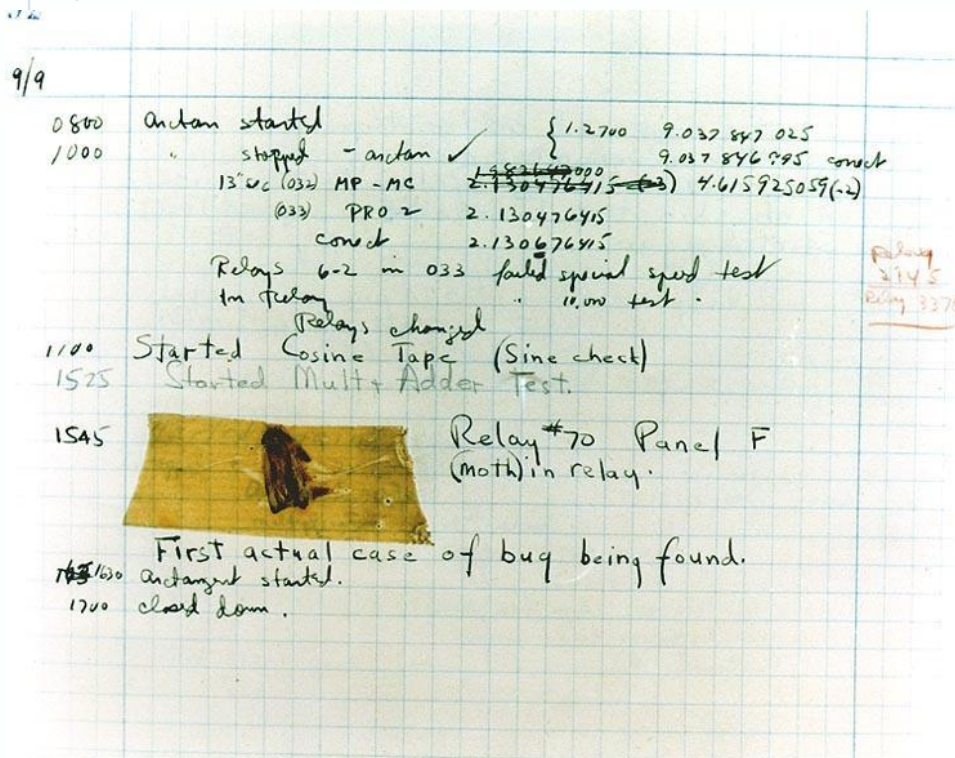 9/9
0800 arctan started { 1.2700 9.037 847 025
1000 " stopped - arctan ✓ 9.037 846 995 correct
13" sec (032) MP - MC 2.130476415 (-3) 4.615925059(-2)
(033) PRO 2 2.130476415
correct 2.130676415
Relays 6-2 in 033 failed special speed test
in relay " 10,000 test .
Relay
2145
Relay 337
Relays changed
1100 Started Cosine Tape (Sine check)
1525 Started Mult + Adder Test.
1545 Relay #70 Panel F
(moth) in relay.
First actual case of bug being found.
1630 arctangent started.
1700 closed down.